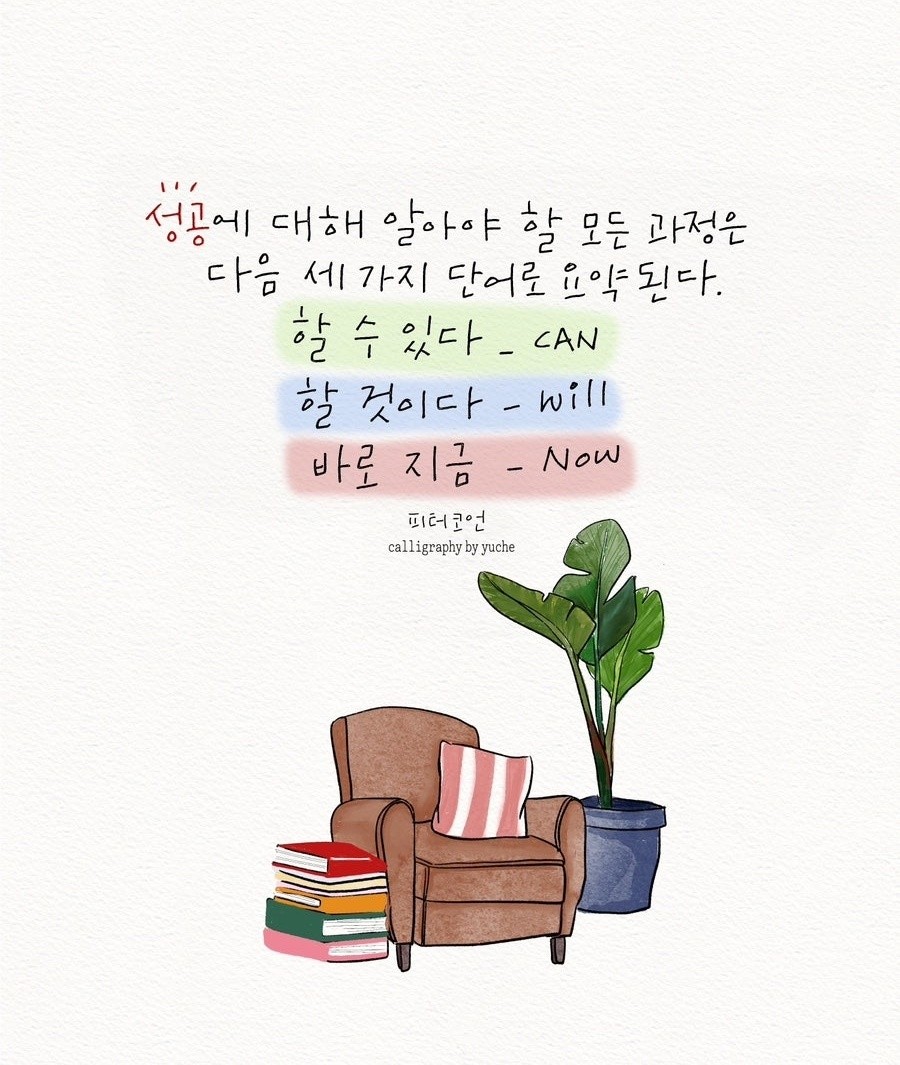 성공에 대해 알아야 할 모든 과정은
다음 세 가지 단어로 요약된다.
할 수 있다 - CAN
할 것이다 - Will
바로 지금 - Now
피터코언
calligraphy by yuche